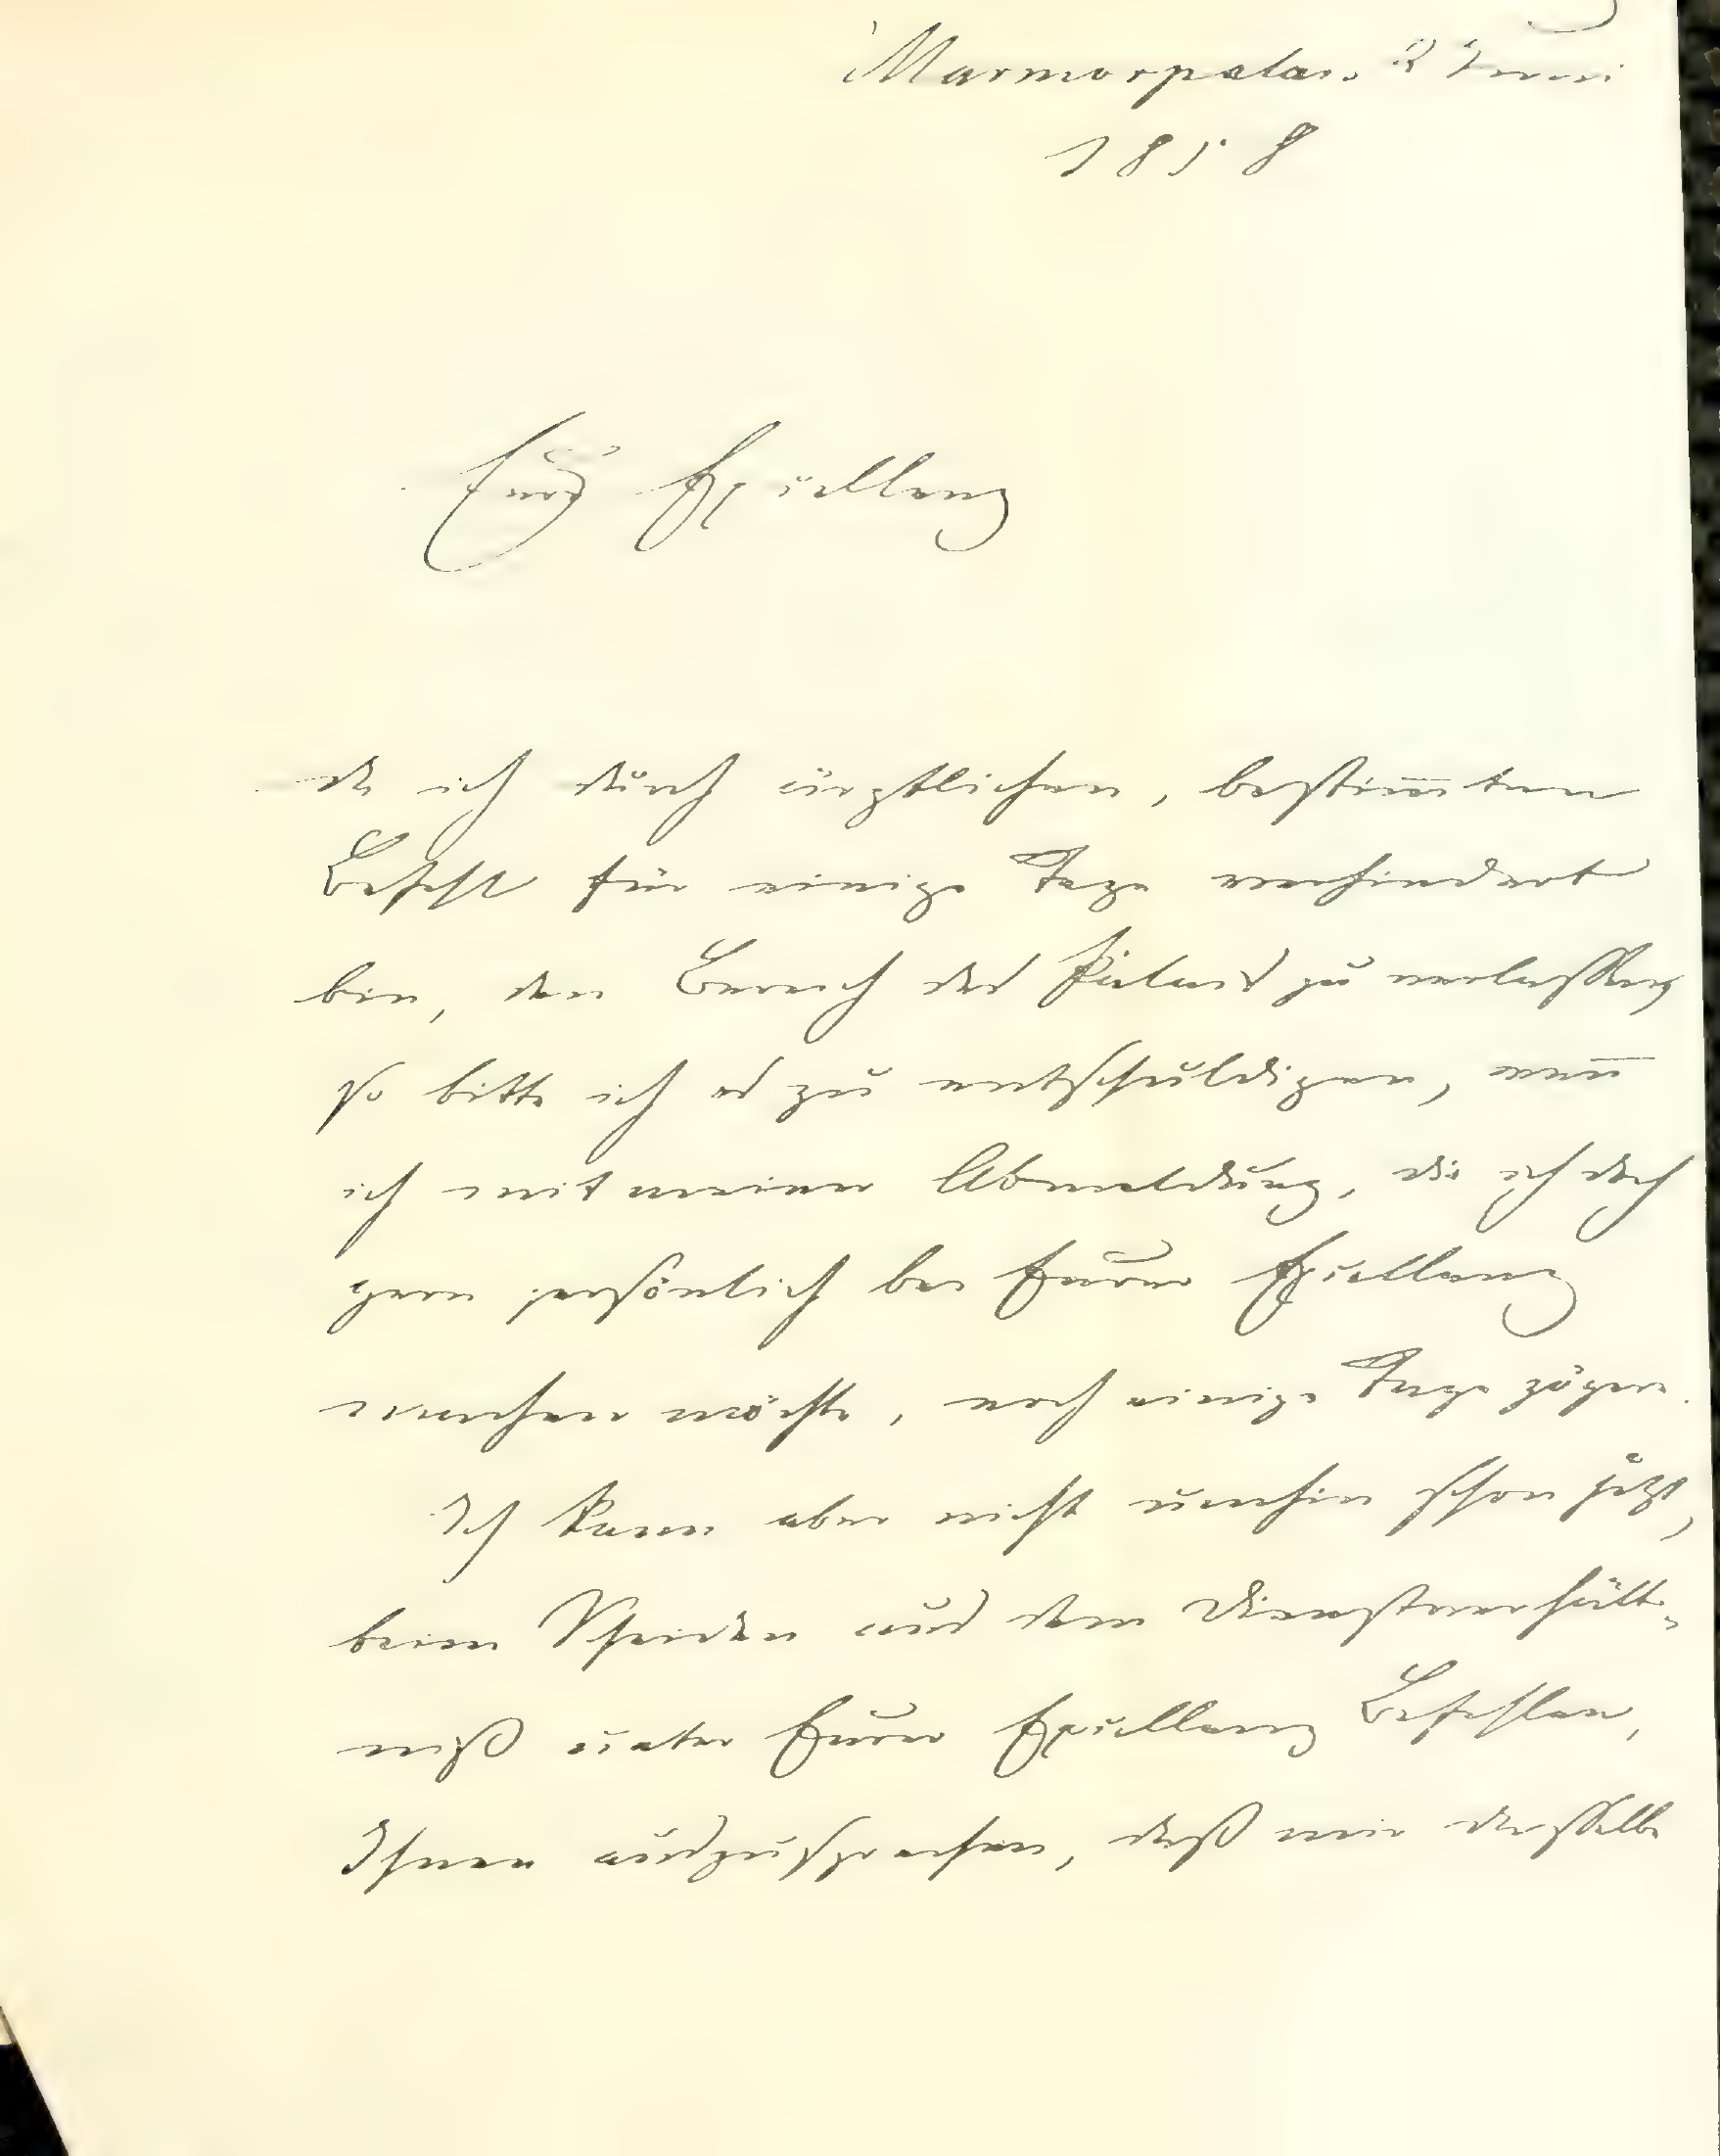 Marmorpalais 2 Juni
1858
Eurer Excellenz
da ich durch ärztlichen, bestim̅ten
Befehl für einige Tage verhindert
bin, den Bereich des Palais zu verlassen,
so bitte ich es zu entschuldigen, wen̅
ich mit meiner Abmeldung, die ich doch
gern persönlich bei Eurer Excellenz
machen möchte, noch einige Tage zögere.
Ich kann aber nicht umhin schon jetzt,
beim Scheiden aus dem Dienstverhält-
niß unter Eurer Excellenz Befehlen,
Ihnen auszusprechen, daß mir dasselbe